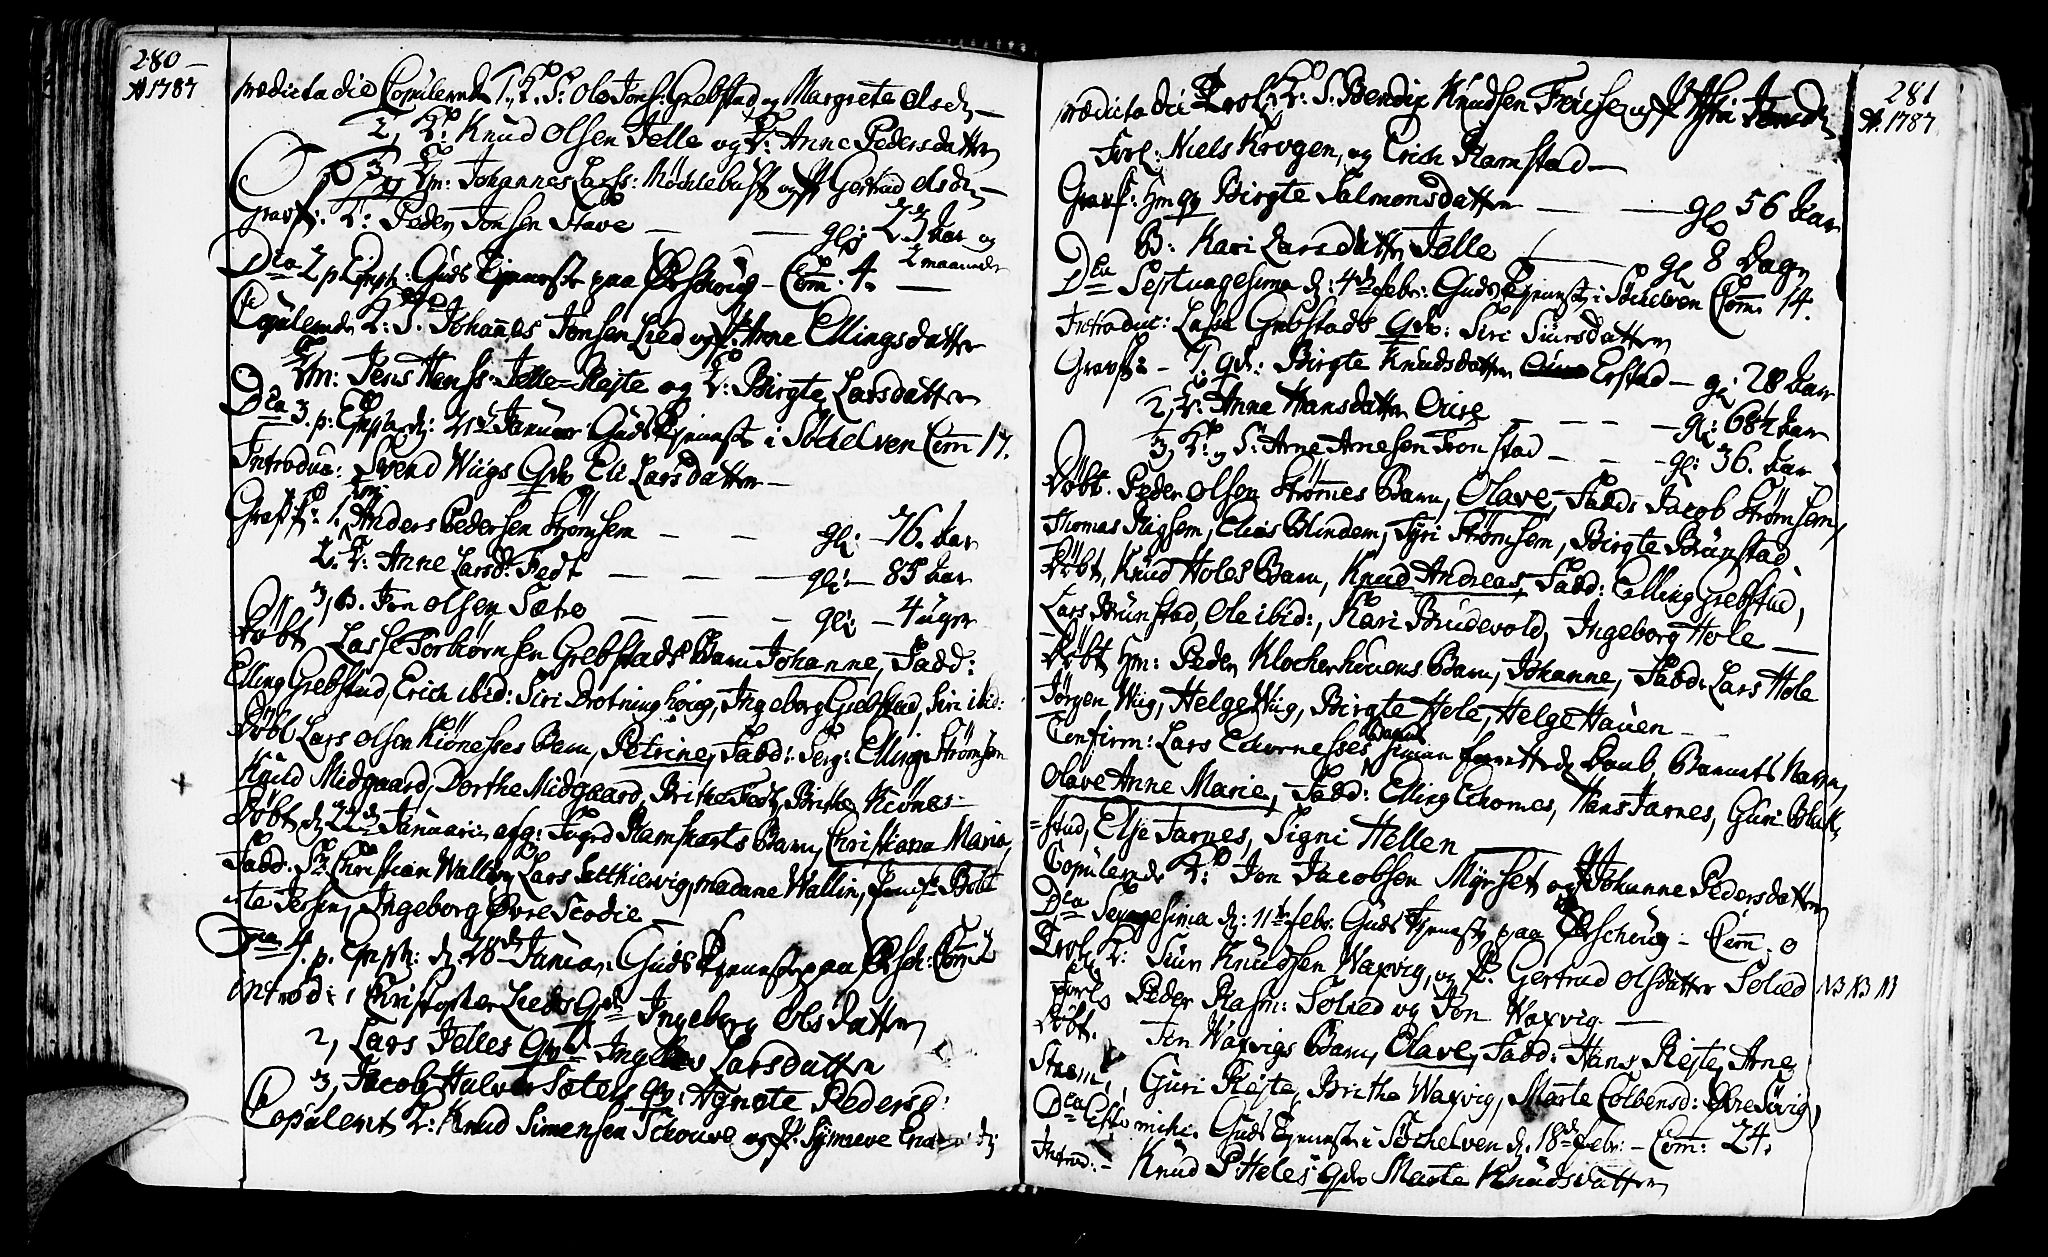 280
Ao 1787
prædicta die Copulerede T. K. S: Ole Jons: Grebstad og Margrete Olsd:
2, K: Knud Olsen Jelle og P: Anne Pedersdatter
3 Em: Johannes Lass: Nøchlebust og P: Gertrud Olsd:
Gravf: K: Peder Jonsen Stave — gl: 23 Aar og
2 maaneder
Dca 2 p Epiph: Guds Tjeneste paa Ørschoug - Com. 4.
Copulerede K: S: Johannes Jonsen Lied og P. Anne Ellingsdatter
Em: Jens Hanss: Jelle-Rejte og P: Birgte Larsdatter
Dca 3. p: Epiph: d: 21de Januar Guds Tjeneste i Søchelven Com 17.
Introduc: Svend Wiigs Qv: Eli Larsdatter —
Gravf: 1. Em: Anders Pedersen Strømsem — gl: 76. Aar
2. P: Anne Larsd: Fedt — gl: 85 Aar
3, B. Jon Olsen Sætre — gl: 4 uger
Døbt Lasse Torbørnsen Grebstads Barn Johanne, Fadd:
Elling Grebstad, Erich ibid: Siri Drotninghoug, Ingeborg Grebstad, Siri ibid:
Døbt Lars Olsen Kiønesses Barn, Petrine, Fadd: Serg: Elling Strømsem
Knud Midgaard, Dorthe Midgaard, Brithe Fedt, Brithe Kiønes
Døbt d: 22de Januarii afg: Sivert Ramstads Barn, Christiana Maria,
Fadd: Sr Christian Wallin, Lars Satthievig, madame Wallin,
Ingeborg Øvre Scodie —
Dca 4. p. Epiph: d: 28de Januar: Guds Tjeneste paa Ørsch: Com: 2
introd: 1 Christopher Lieds Qv: Ingeborg Olsdatter
2, Lars Jelles Qv: Larsdatter
3, Jacob Sætres qv: Agnete Pedersd:
Copuleret K: Knud Simensen Schouve og P. Synneve
281
Ao. 1787
prædicta die Trol: K: S: Bendix Knudsen
Forl: Niels Krogen, og Erich Ramstad —
Gravf: Em qv Birgte Salmonsdatter — gl 56 Aar
B: Kari Larsdatter Jelle — gl 8 Dage
Dca Septuagesima d: 4de Febr: Guds Tjeneste i Søchelven Com 14.
Introduc: Lasse Grebstads Qv: Siri Siursdatter
Gravf: - 1. qv: Birgte Knudsdatter Erstad — gl: 28 Aar
2, P: Anne Hansdatter — gl: 68½ Aar
3, K: og S: Arne Arnesen Tronstad — gl: 36. Aar
Døbt. Peder Olsen Strømes Barn, Olave, Fadd: Jacob Strømsem,
Thomas Rigsem, Elias Blindem, Syri Strømsem, Birgte Brunstad
Døbt, Knud Holes Barn, Knud Andreas, Fadd: Elling Grebstad,
Lars Brunstad, Ole ibid:, Kari Brudevold, Ingeborg Hole —
Døbt Em: Peder Klocherhouens Barn, Johanne, Fadd: Lars Hole
Jørgen Wiig, Helge Wiig, Birgte Hole, Helge Hauen
Confirm: Lars Echornesses hiemme forrettede Daab, Barnets Navn,
Olave Anne Marie, Fadd: Elling Echornes, Hans Jarnes, Guri Blak-
=stad, Else Jarnes, Signi Hellen
Copulerede K: Jon Jacobsen Myrset og P: Johanne Pedersdatter
Dca Sexagesima d: 11te Febr: Guds Tjeneste paa Ørschoug - Com. 0
Trol: K: Siur Knudsen Waxvig, og P. Gertrud Olsdatter Solied NB NB NB
Forl: Peder Rasm: Solied og Jon Waxvig. —
Døbt. Jon Waxvigs Barn, Olave, Fadd: Hans Rejte, Arne
Strøm, Guri Rejte, Brithe Waxvig, Marte Colbensd: Øvre Søvig,
Dca Esto mihi. Guds Tjeneste i Søchelven d: 18de Febr: - Com: 24.
Introd: - Knud Holes Qv: Marte Knudsdatter